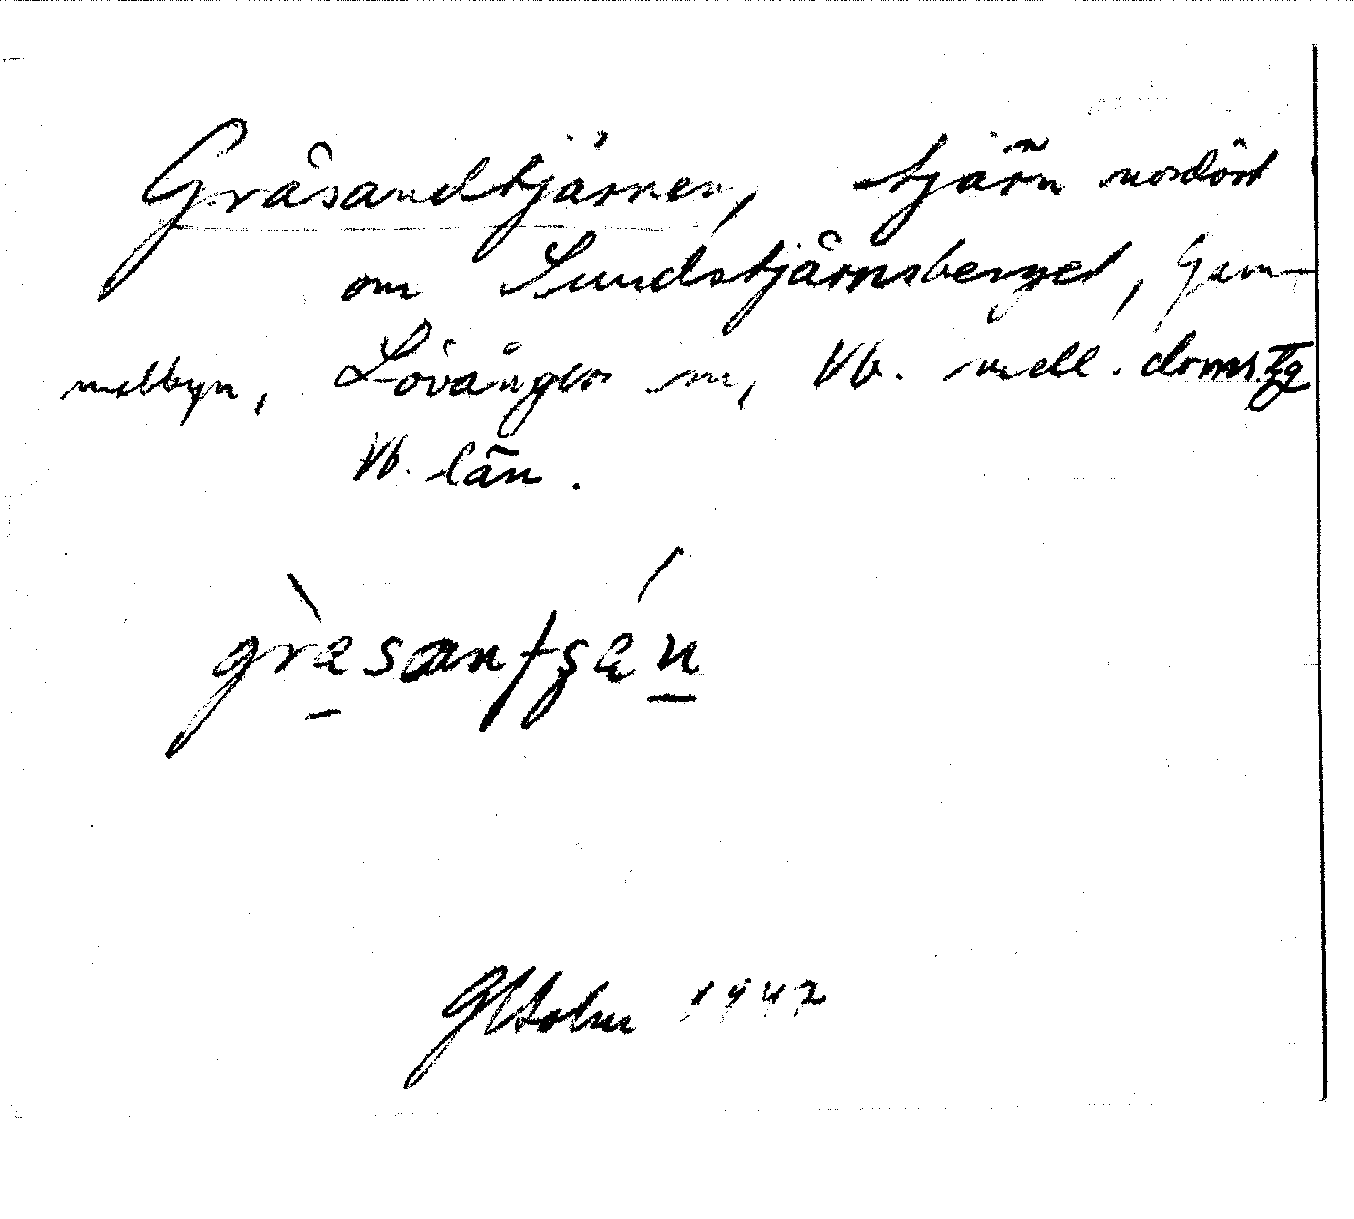 Gräsandtjärnen, tjärn nordöst
om Sundstjärnsberget, Gam-
melbyn, Lövånger sn, Vb. mell. doms.
Vb. län.
græsantʂæn
Holm 1947